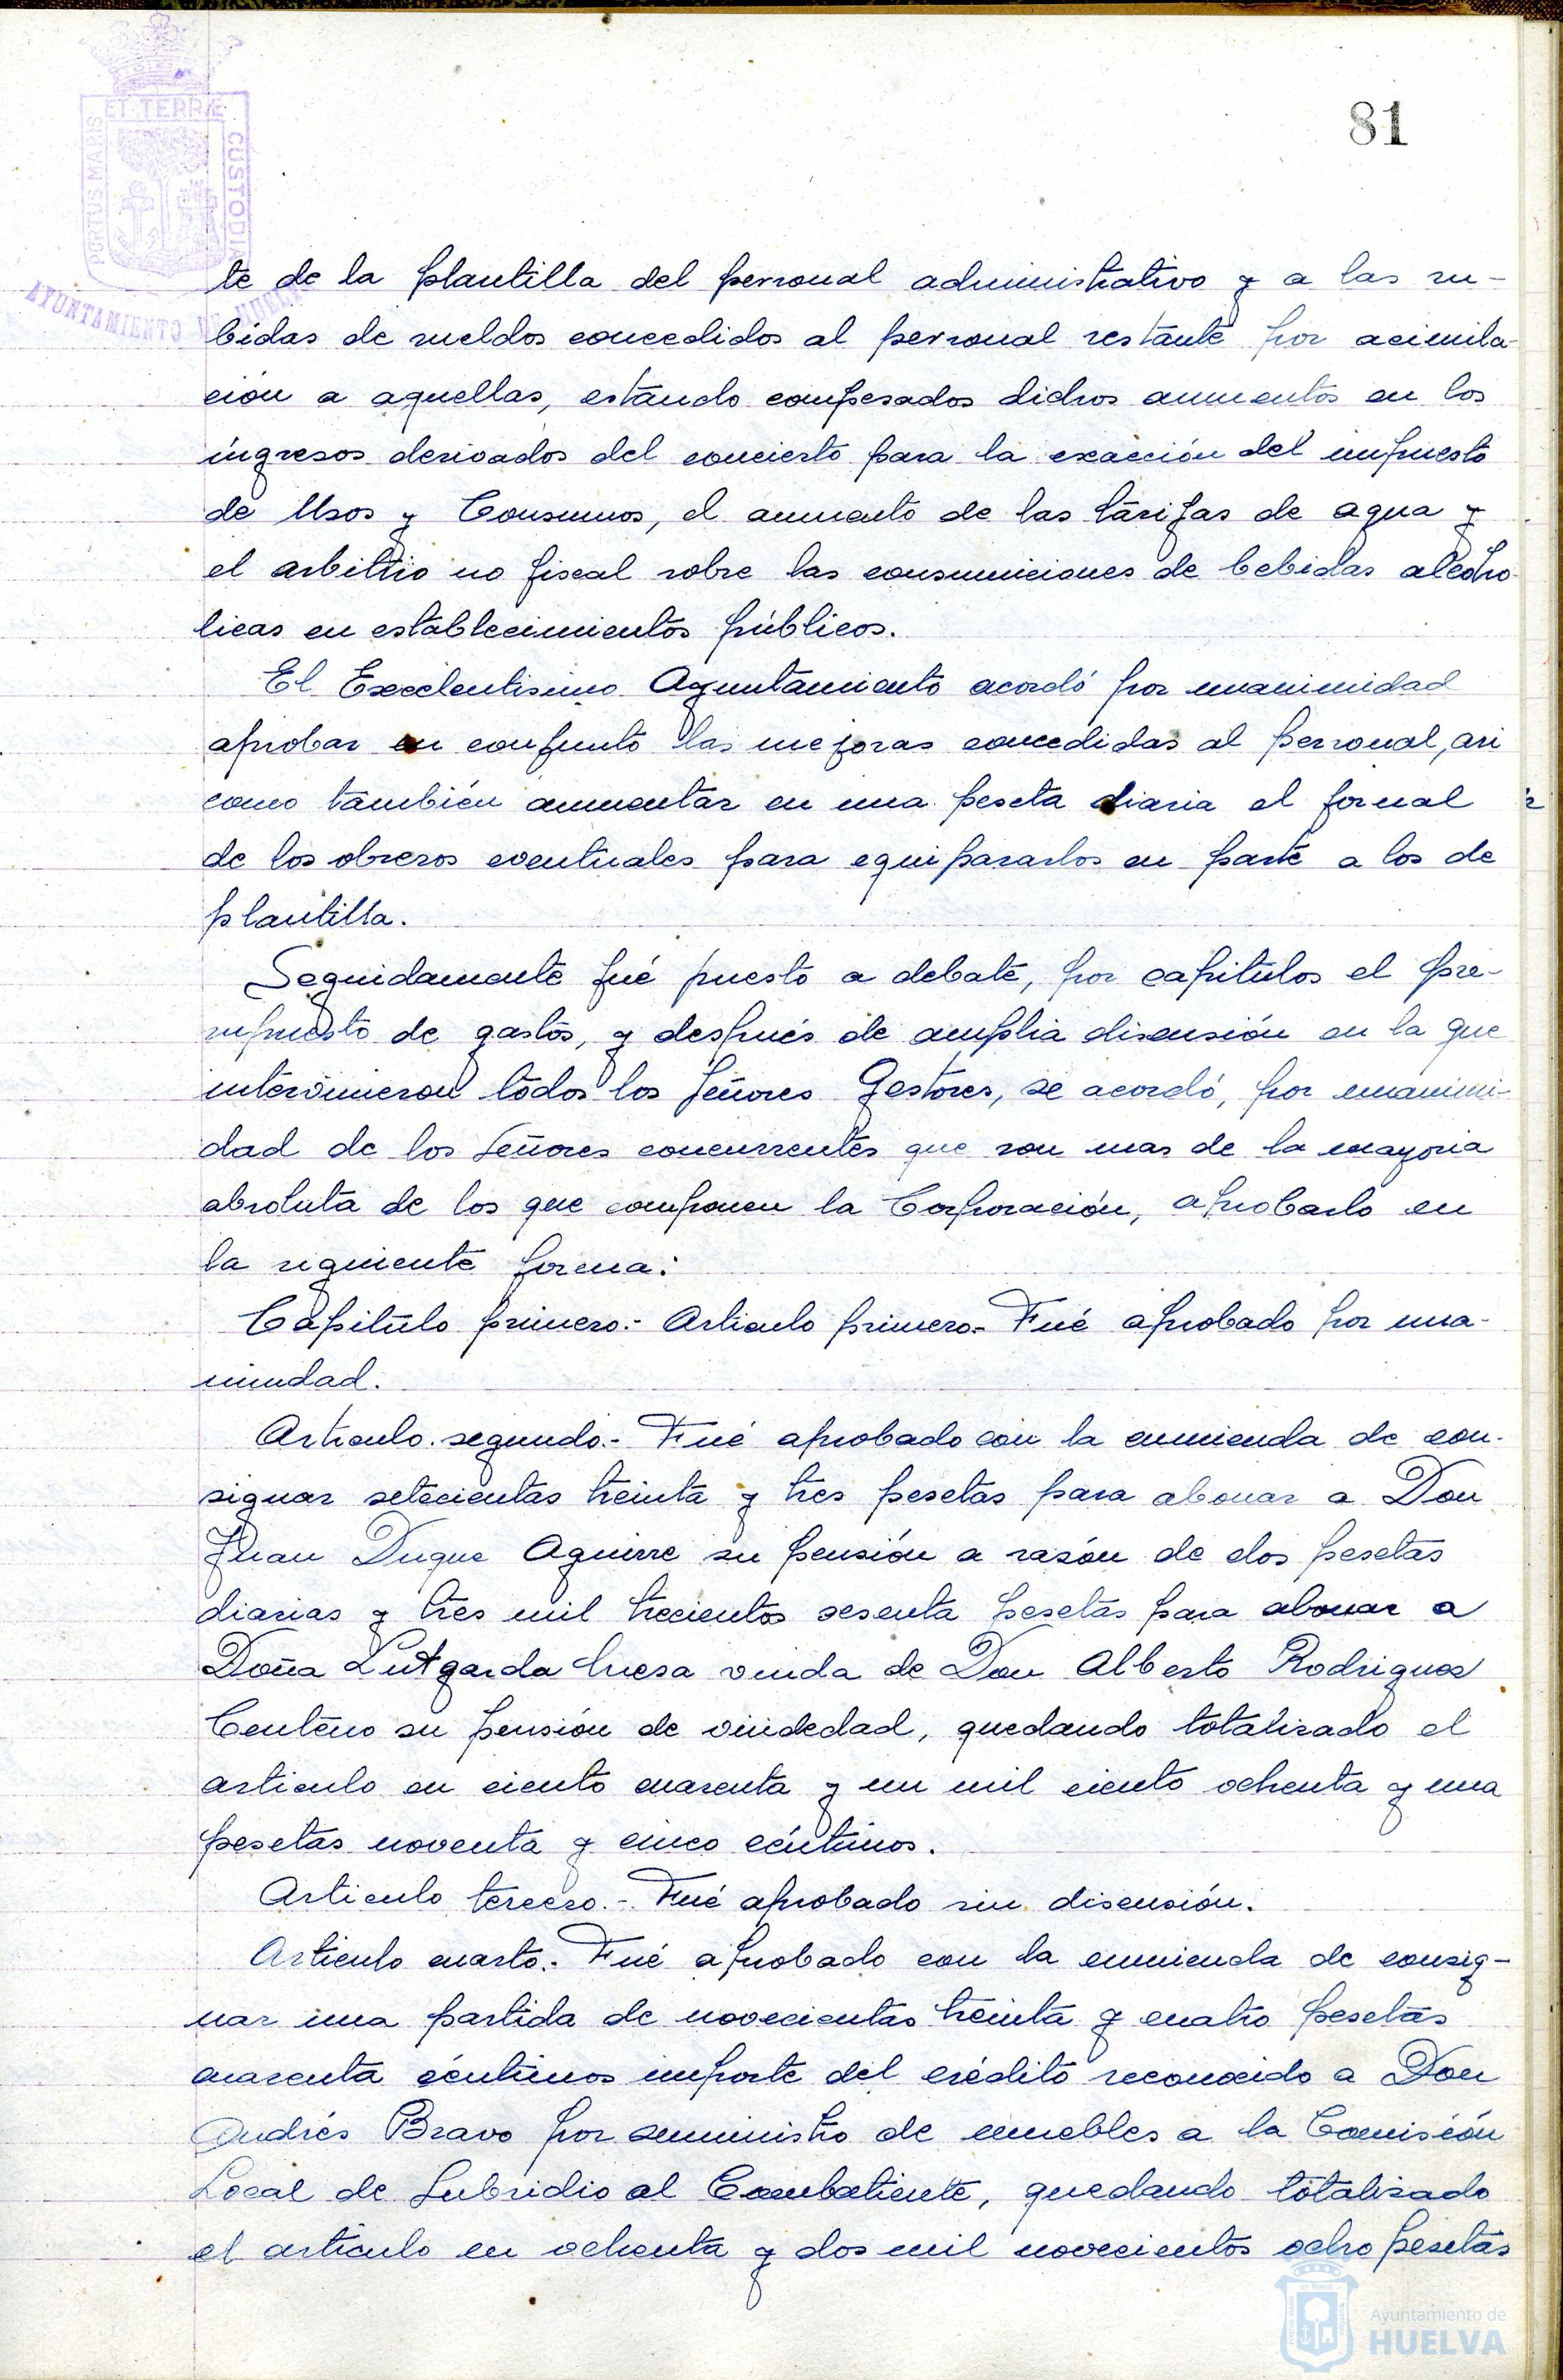 81
PORTUS MARIS
ET TERRÆ
CUSTODIA
AYUNTAMIENTO DE HUELVA
te de la plantilla del personal administrativo y a las su-
bidas de sueldos concedidos al personal restante por acimila-
ción a aquellas, estando compesados dichos aumentos en los
ingresos derivados del concierto para la exacción del impuesto
de Usos y Consumos, el aumento de las tarifas de agua y
el arbitrio no fiscal sobre las consumiciones de bebidas alcoho-
licas en establecimientos públicos.
El Excelentisimo Ayuntamiento acordó por unanimidad
aprobar en conjunto las mejoras concedidas al personal, asi
como también aumentar en una peseta diaria el jornal
de los obreros eventuales para equipararlos en parte a los de
plantilla.
Seguidamente fué puesto a debate, por capitulos el pre-
supuesto de gastos, y después de amplia discusión en la que
intervinieron todos los Señores Gestores, se acordó, por unanimi-
dad de los Señores concurrentes que son mas de la mayoria
absoluta de los que componen la Corporación, aprobarlo en
la siguiente forma:
Capitulo primero.- Articulo primero.- Fué aprobado por una-
nimidad.
Articulo segundo.- Fué aprobado con la enmienda de con-
signar setecientas treinta y tres pesetas para abonar a Don
Juan Duque Aguirre su pensión a razón de dos pesetas
diarias y tres mil trecientos sesenta pesetas para abonar a
Doña Lutgarda viuda de Don Alberto Rodriguez
Centeno su pensión de viudedad, quedando totalizado el
articulo en ciento cuarenta y un mil ciento ochenta y una
pesetas noventa y cinco céntimos.
Articulo tercero.- Fué aprobado sin discusión.
Articulo cuarto.- Fué aprobado con la enmienda de consig-
nar una partida de novecientas treinta y cuatro pesetas
cuarenta céntimos importe del crédito reconocido a Don
Andrés Bravo por suministro de muebles a la Comisión
Local de Subsidio al Combatiente, quedando totalizado
el articulo en ochenta y dos mil novecientos ocho pesetas
Ayuntamiento de
HUELVA